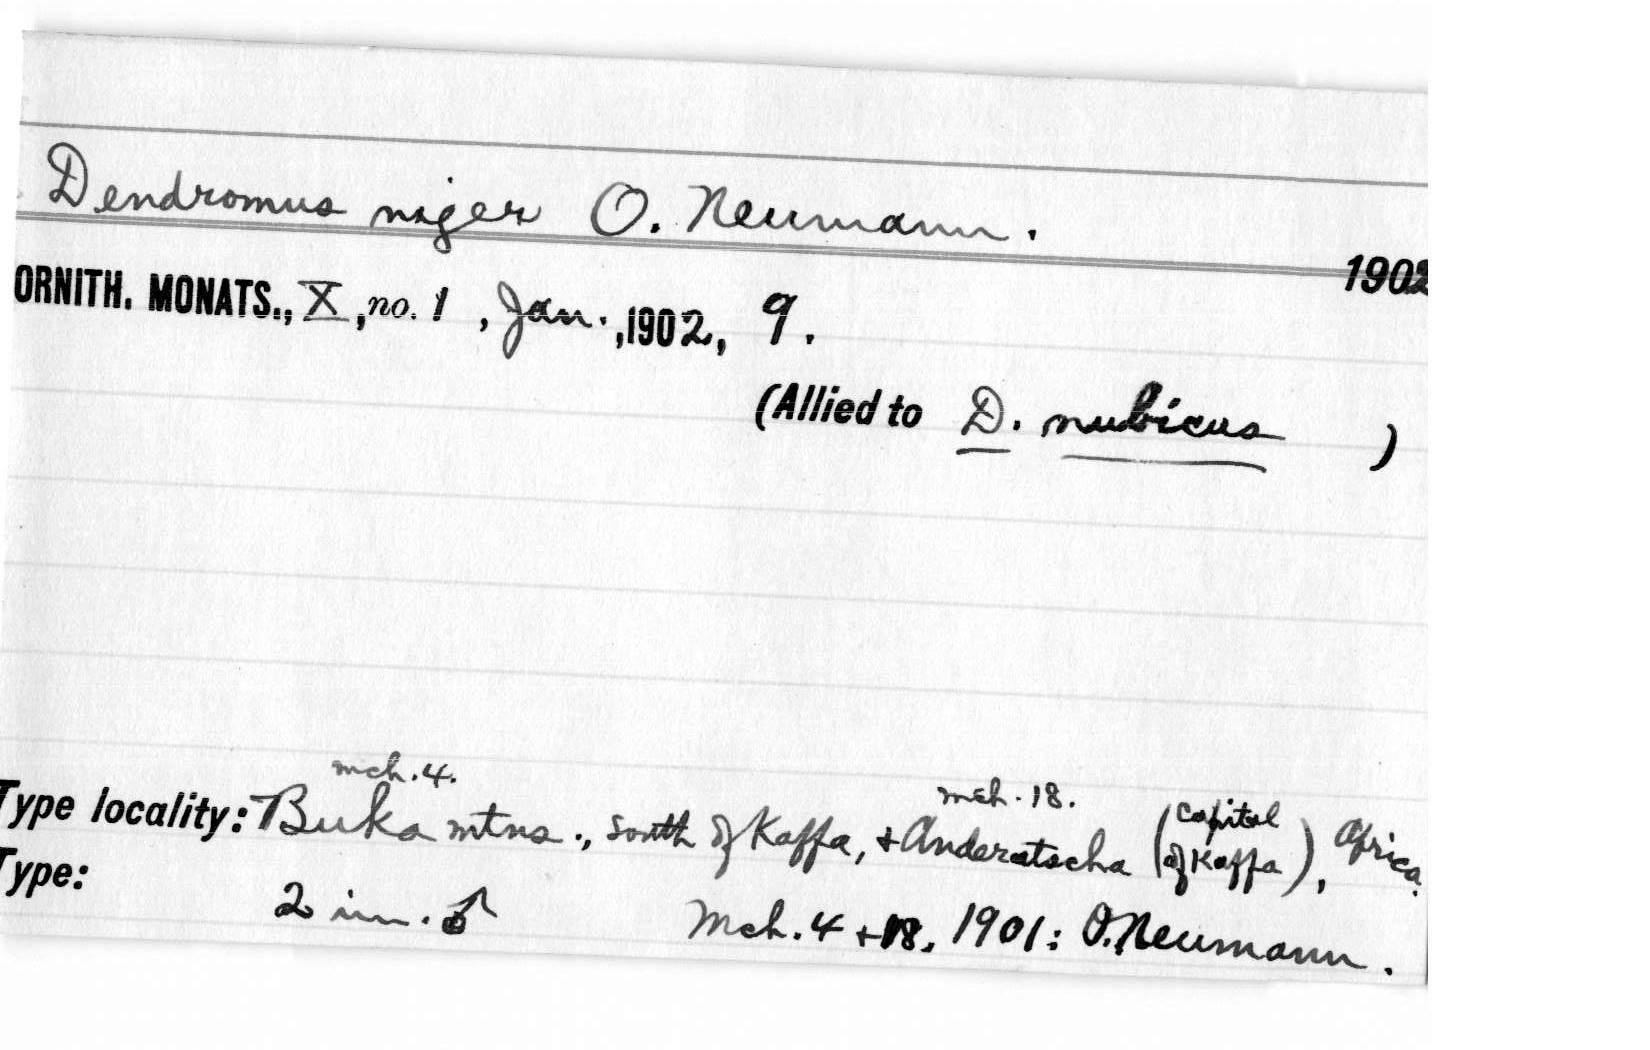 Dendromus niger O. Neumann.
1902
ORNITH. MONATS., X, no. 1, Jan., 1902, 9.
(Allied to D. nubicus )
mch. 4. mch. 18.
Type locality: Buka mtns., south of Kaffa, + Anderatscha (capital of Kaffa), Africa.
Type:
2 im. ♂ Mch. 4 + 18, 1901: O. Neumann.